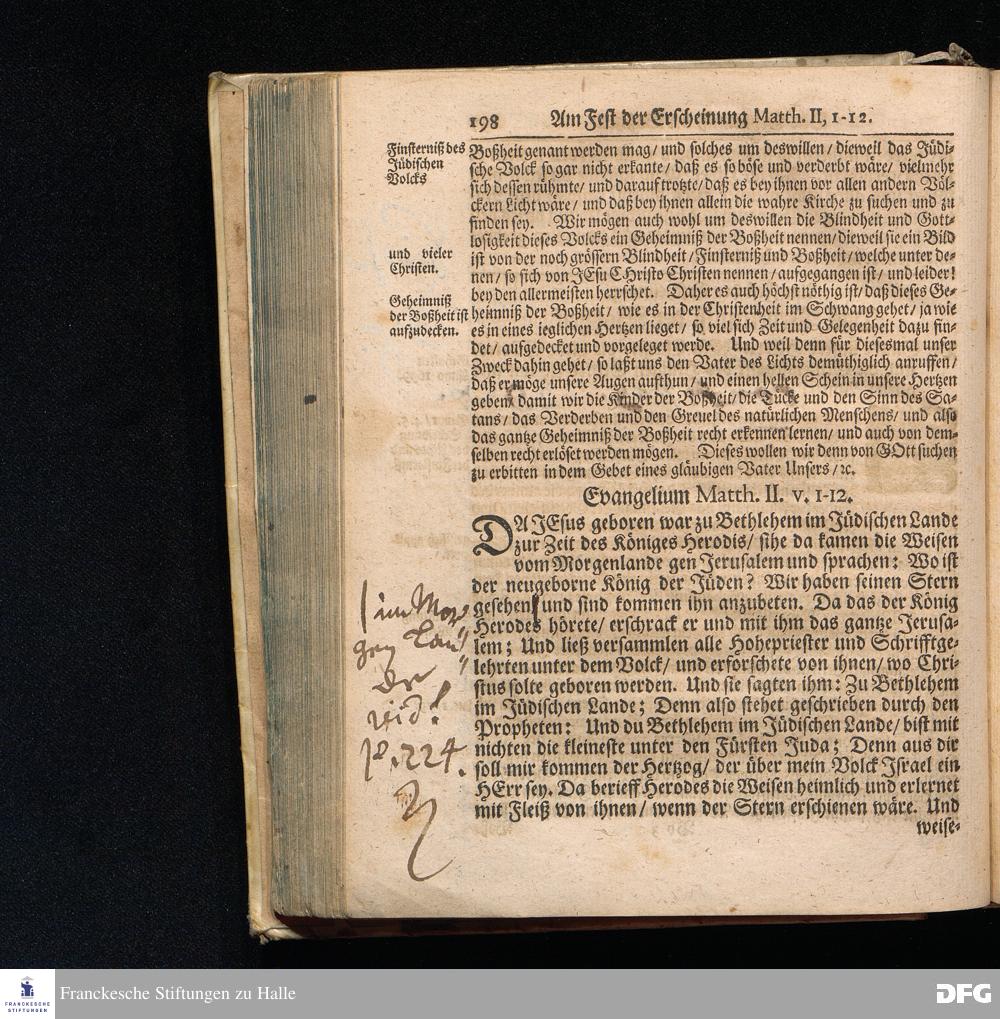 198 Am Fest der Erscheinung Matth. II, 1-12.
Finsterniß des
Jüdischen
Volcks
und vieler
Christen.
Geheimniß
der Boßheit ist
aufzudecken.
Boßheit genant werden mag/ und solches um deswillen/ dieweil das Jüdi-
sche Volck so gar nicht erkante/ daß es so böse und verderbt wäre/ vielmehr
sich dessen rühmte/ und darauf trotzte/ daß es bey ihnen vor allen andern Völ-
ckern Licht wäre/ und daß bey ihnen allein die wahre Kirche zu suchen und zu
finden sey. Wir mögen auch wohl um deswillen die Blindheit und Gott-
losigkeit dieses Volcks ein Geheimniß der Boßheit nennen/ dieweil sie ein Bild
ist von der noch grössern Blindheit/ Finsterniß und Boßheit/ welche unter de-
nen/ so sich von JEsu CHristo Christen nennen/ aufgegangen ist/ und leider!
bey den allermeisten herrschet. Daher es auch höchst nöthig ist/ daß dieses Ge-
heimniß der Boßheit/ wie es in der Christenheit im Schwang gehet/ ja wie
es in eines ieglichen Hertzen lieget/ so viel sich Zeit und Gelegenheit dazu fin-
det/ aufgedecket und vorgeleget werde. Und weil denn für diesesmal unser
Zweck dahin gehet/ so laßt uns den Vater des Lichts demüthiglich anruffen/
daß er möge unsere Augen aufthun/ und einen hellen Schein in unsere Hertzen
geben/ damit wir die Kinder der Boßheit/ die Tücke und den Sinn des Sa-
tans/ das Verderben und den Greuel des natürlichen Menschens/ und also
das gantze Geheimniß der Boßheit recht erkennen lernen/ und auch von dem-
selben recht erlöset werden mögen. Dieses wollen wir denn von GOtt suchen
zu erbitten in dem Gebet eines gläubigen Vater Unsers/ ꝛc.
Evangelium Matth. II. v. 1-12.
DA JEsus geboren war zu Bethlehem im Jüdischen Lande
zur Zeit des Königes Herodis/ sihe da kamen die Weisen
vom Morgenlande gen Jerusalem und sprachen: Wo ist
der neugeborne König der Jüden? Wir haben seinen Stern
gesehen/ und sind kommen ihn anzubeten. Da das der König
Herodes hörete/ erschrack er und mit ihm das gantze Jerusa-
lem; Und ließ versammlen alle Hohepriester und Schrifftge-
lehrten unter dem Volck/ und erforschete von ihnen/ wo Chri-
stus solte geboren werden. Und sie sagten ihm: Zu Bethlehem
im Jüdischen Lande; Denn also stehet geschrieben durch den
Propheten: Und du Bethlehem im Jüdischen Lande/ bist mit
nichten die kleineste unter den Fürsten Juda; Denn aus dir
soll mir kommen der Hertzog/ der über mein Volck Israel ein
HErr sey. Da berieff Herodes die Weisen heimlich und erlernet
mit Fleiß von ihnen/ wenn der Stern erschienen wäre. Und
weise-
im Mor
gen Lan
de
vid!
p. 224.
FRANCKESCHE
STIFTUNGEN
Franckesche Stiftungen zu Halle
DFG